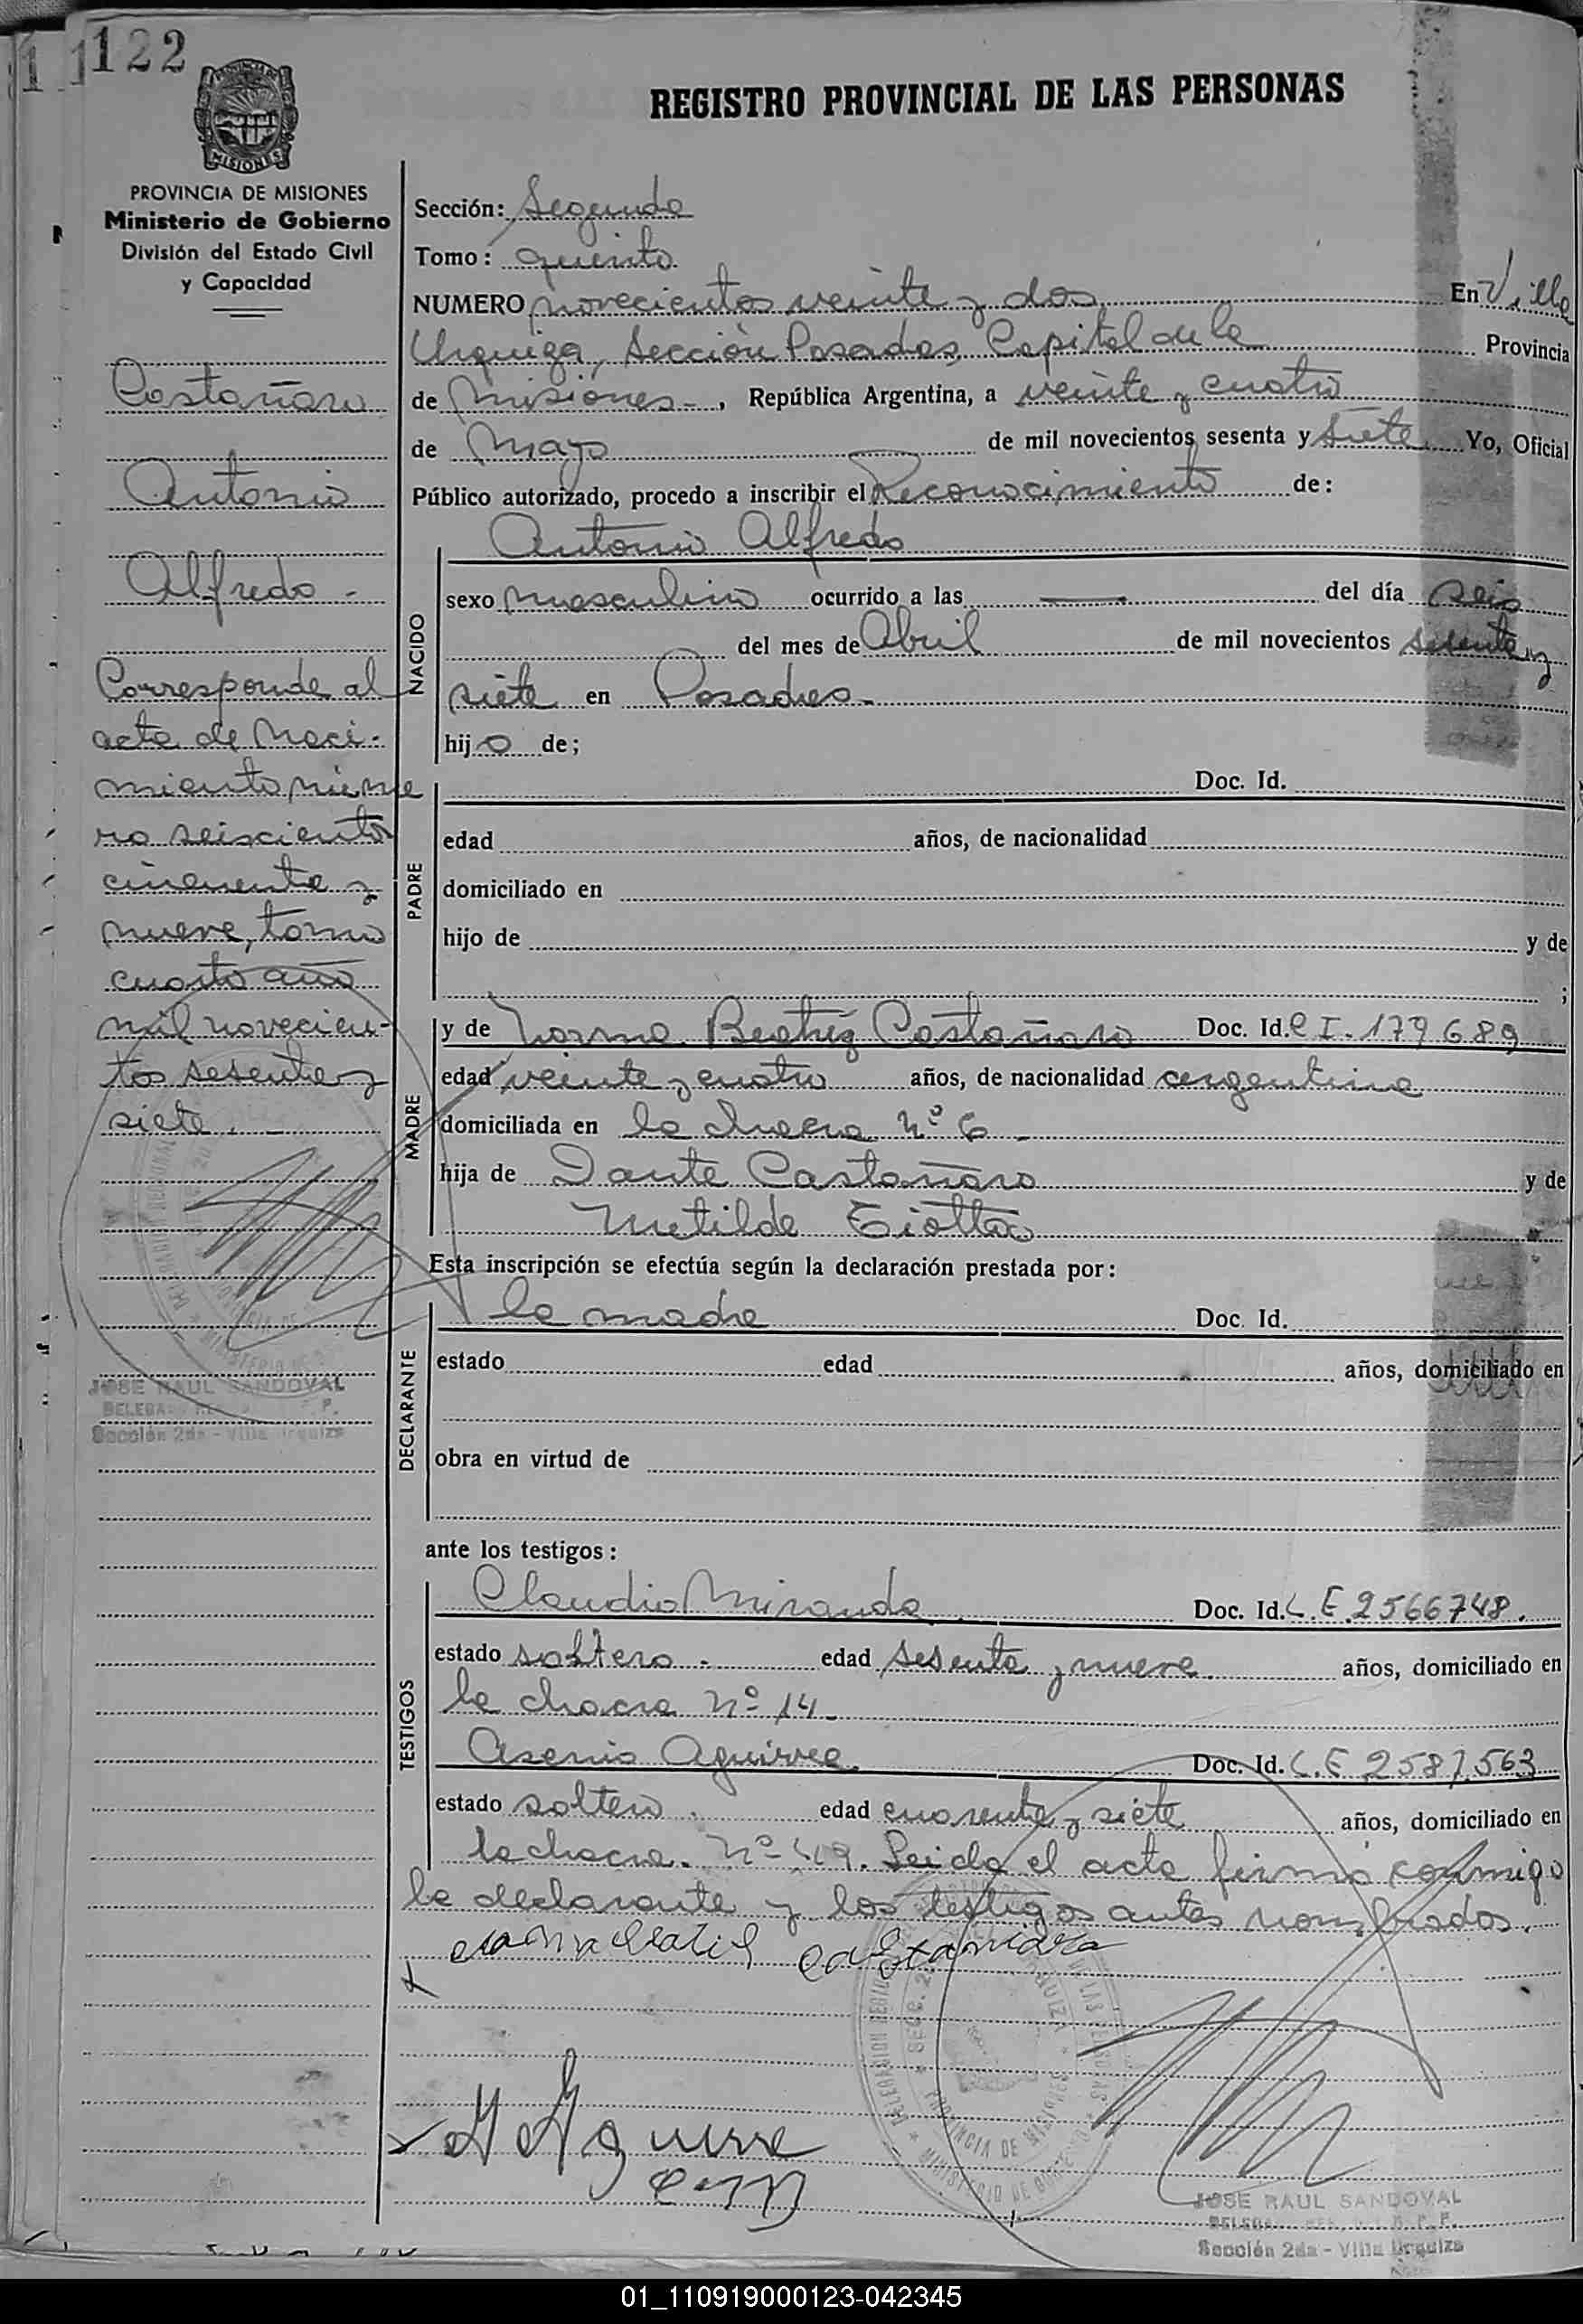 122
REGISTRO PROVINCIAL DE LAS PERSONAS
MISIONES
PROVINCIA DE MISIONES
Ministerio de Gobierno
División del Estado Civil
y Capacidad
Castañaro
Antonio
Alfredo -
Corresponde al
acta de Naci-
miento núme
ro seiscientos
cincuenta y
nueve, tomo
cuarto año
mil novecien-
tos sesenta y
siete.
JOSE RAUL SANDOVAL
Sección 2da - Villa Urquiza
Sección: Segunda
Tomo: quinto
NUMERO novecientos veinte y dos En Villa
Urquiza, Sección Posadas, Capital de la Provincia
de Misiones -, República Argentina, a veinte y cuatro
de Mayo de mil novecientos sesenta y siete Yo, Oficial
Público autorizado, procedo a inscribir el Reconocimiento de:
Antonio Alfredo
NACIDO
sexo masculino ocurrido a las — del día seis
del mes de Abril de mil novecientos sesenta y
siete en Posadas -
hijo de;
PADRE
Doc. Id.
edad años, de nacionalidad
domiciliado en
hijo de y de
;
MADRE
y de Norma Beatriz Castañaro Doc. Id. C I. 179689
edad veinte y cuatro años, de nacionalidad argentina
domiciliada en la chacra Nº 6 -
hija de Dante Castañaro y de
Matilde
Esta inscripción se efectúa según la declaración prestada por:
DECLARANTE
la madre Doc. Id.
estado edad años, domiciliado en
obra en virtud de
ante los testigos:
TESTIGOS
Claudio Miranda Doc. Id. L.E. 2566748.
estado soltero. edad sesenta y nueve años, domiciliado en
la chacra Nº 14 -
Asenio Aguirre. Doc. Id. L.E 2587.563
estado soltero. edad cuarenta y siete años, domiciliado en
la chacra. Nº 119. Leida el acta firma conmigo
la declarante y los testigos antes nombrados.
Castañara
Aguirre
JOSE RAUL SANDOVAL
Sección 2da - Villa Urquiza
01_110919000123-042345